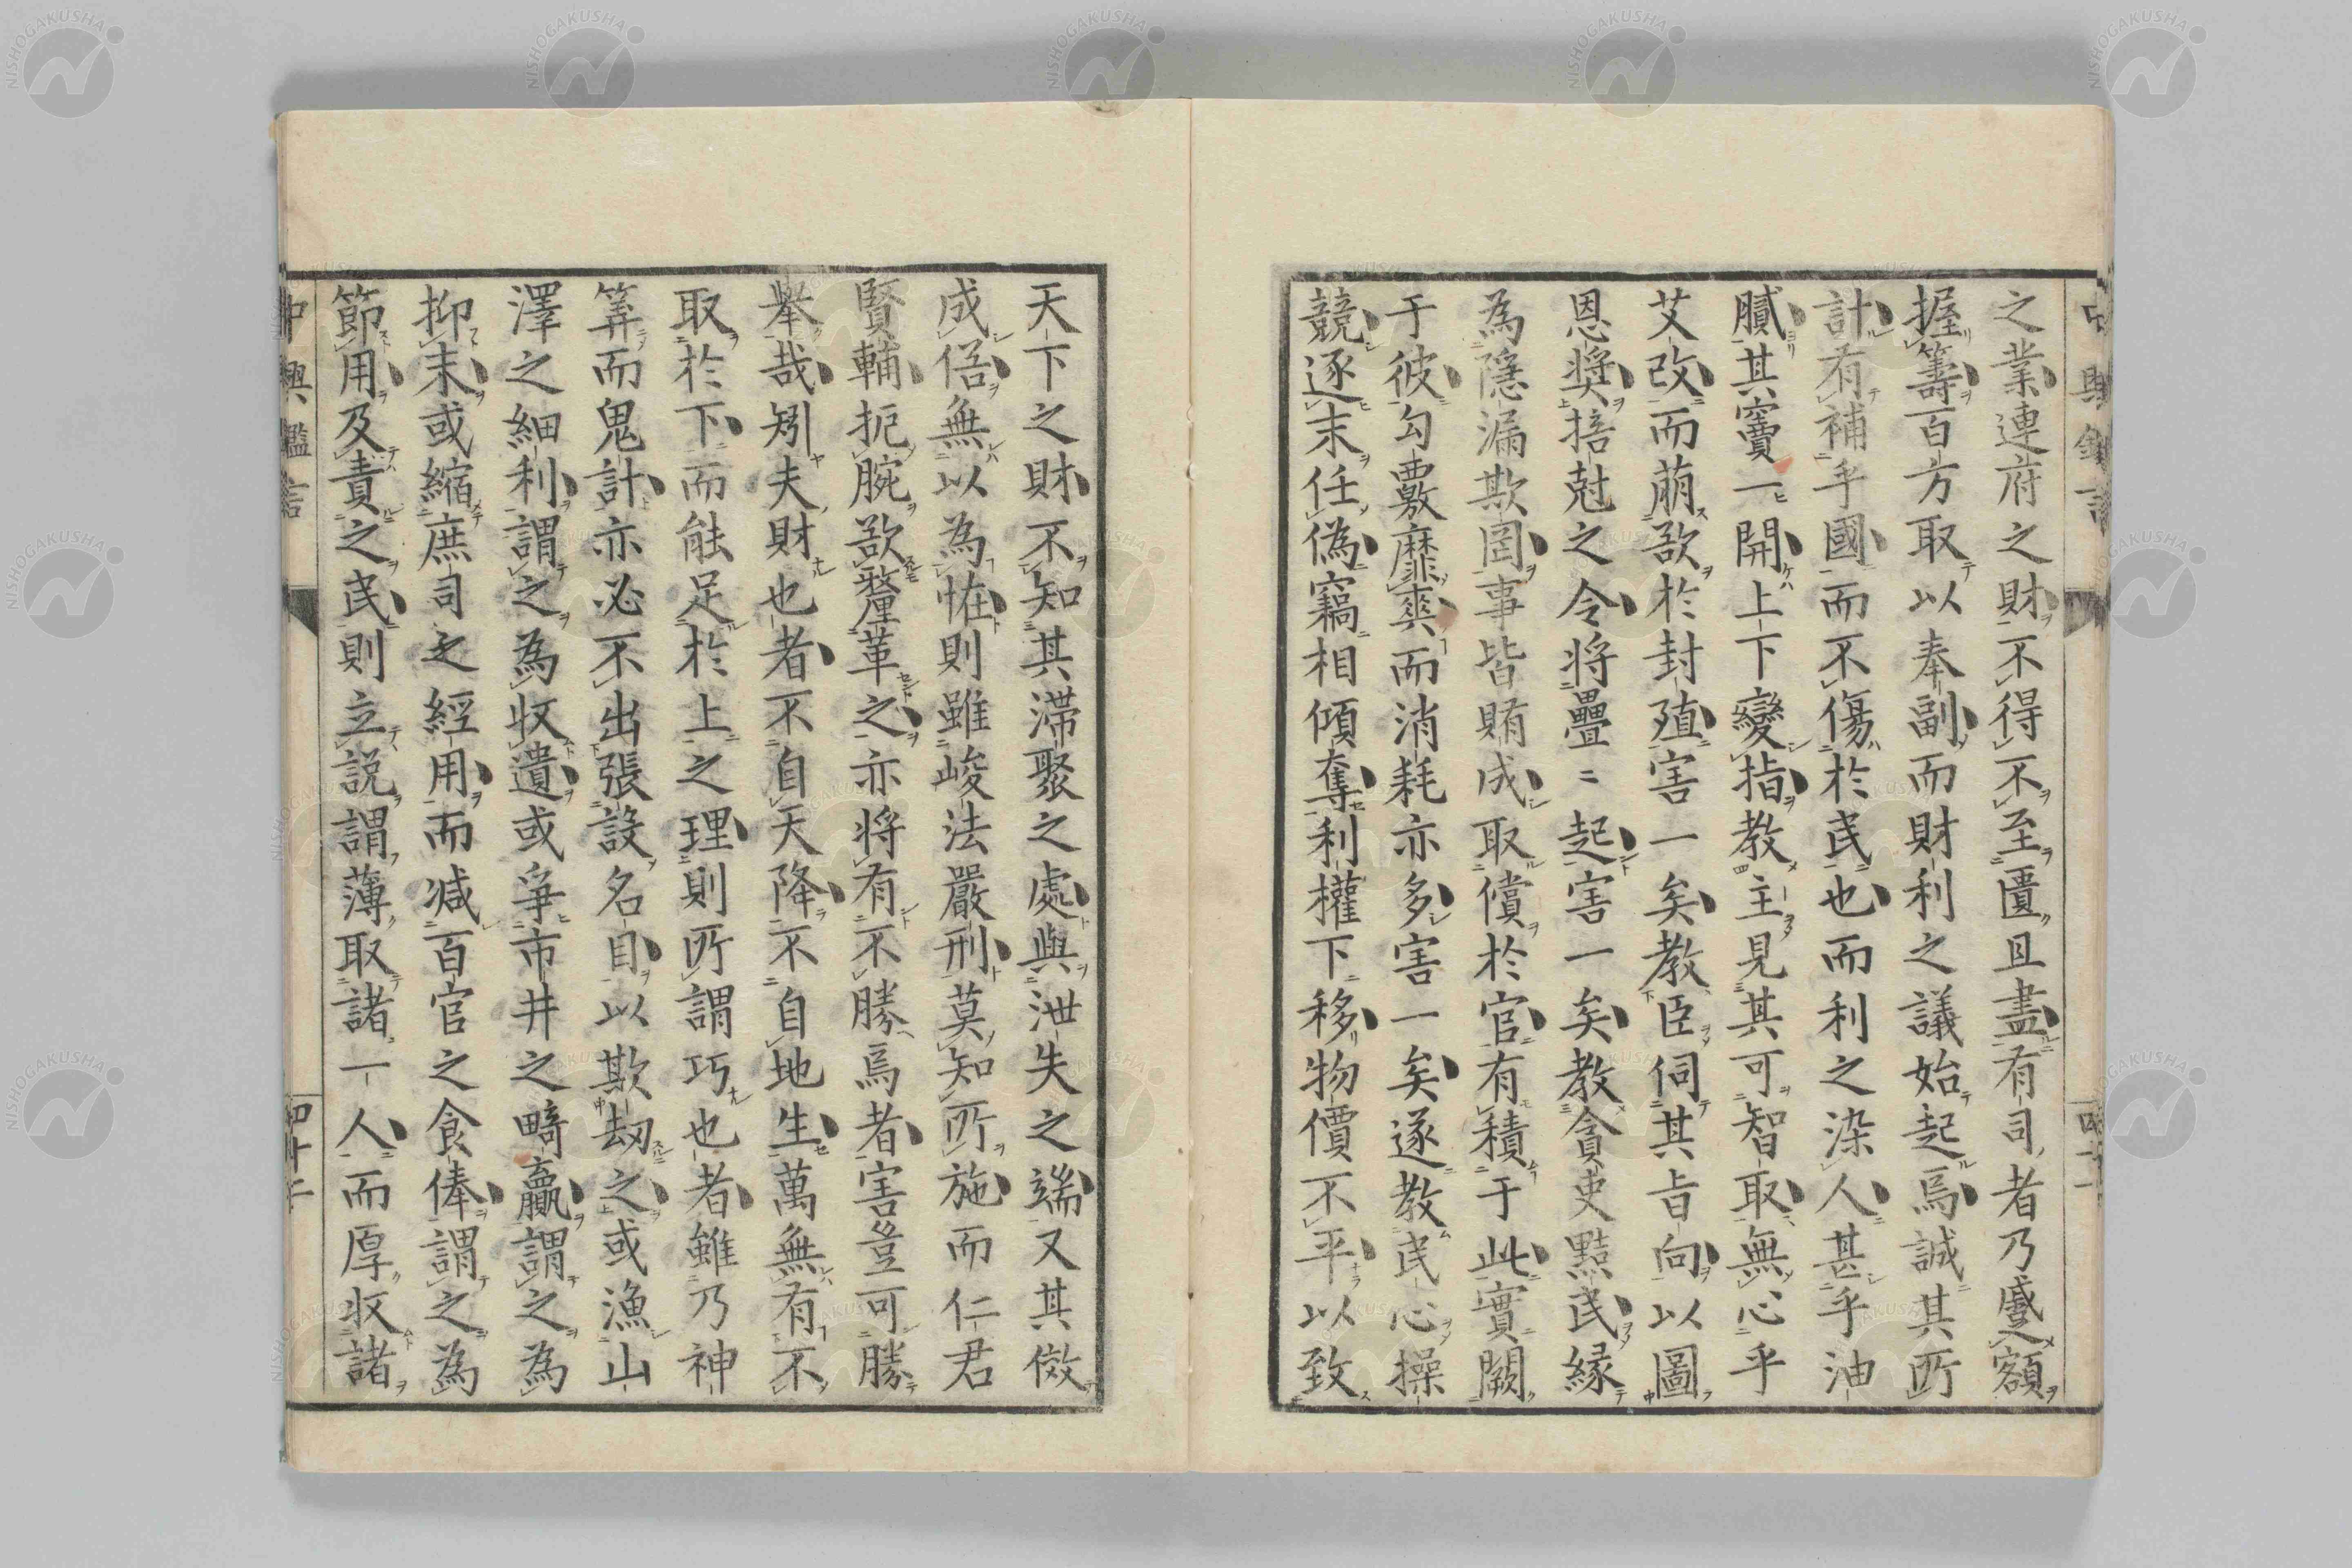 之業連府之財不得不至匱且盡有司者乃蹙額
握籌百方取以奉副而財利之議始起焉誠其所
計有補乎國而不傷於民也而利之染人甚乎油
膩其竇一開上下變指教主見其可智取無心乎
艾改而萠欲於封殖害一矣教臣伺其旨向以圖
恩奬掊尅之令將疊〻起害一矣教貪吏黠民緣
為隱漏欺罔事皆賄成取償於官有積于此實闕
于彼勾覈靡爽而消耗亦多害一矣遂教民心操
競逐末任偽竊相傾奪利權下移物價不平以致
天下之財不知其滯聚之處與泄失之端又其傚
成俗無以為恠則雖峻法嚴刑莫知所施而仁君
賢輔扼腕欲釐革之亦將有不勝焉者害豈可勝
舉哉矧夫財也者不自天降不自地生萬無有不
取於下而能足於上之理則所謂巧也者雖乃神
筭而鬼計亦必不出張設名目以欺刼之或漁山
澤之細利謂之為收遺或爭市井之畸贏謂之為
抑末或縮庶司之經用而減百官之食俸謂之為
節用及責之民則立說謂薄取諸一人而厚收諸
中興鑑言
四十二